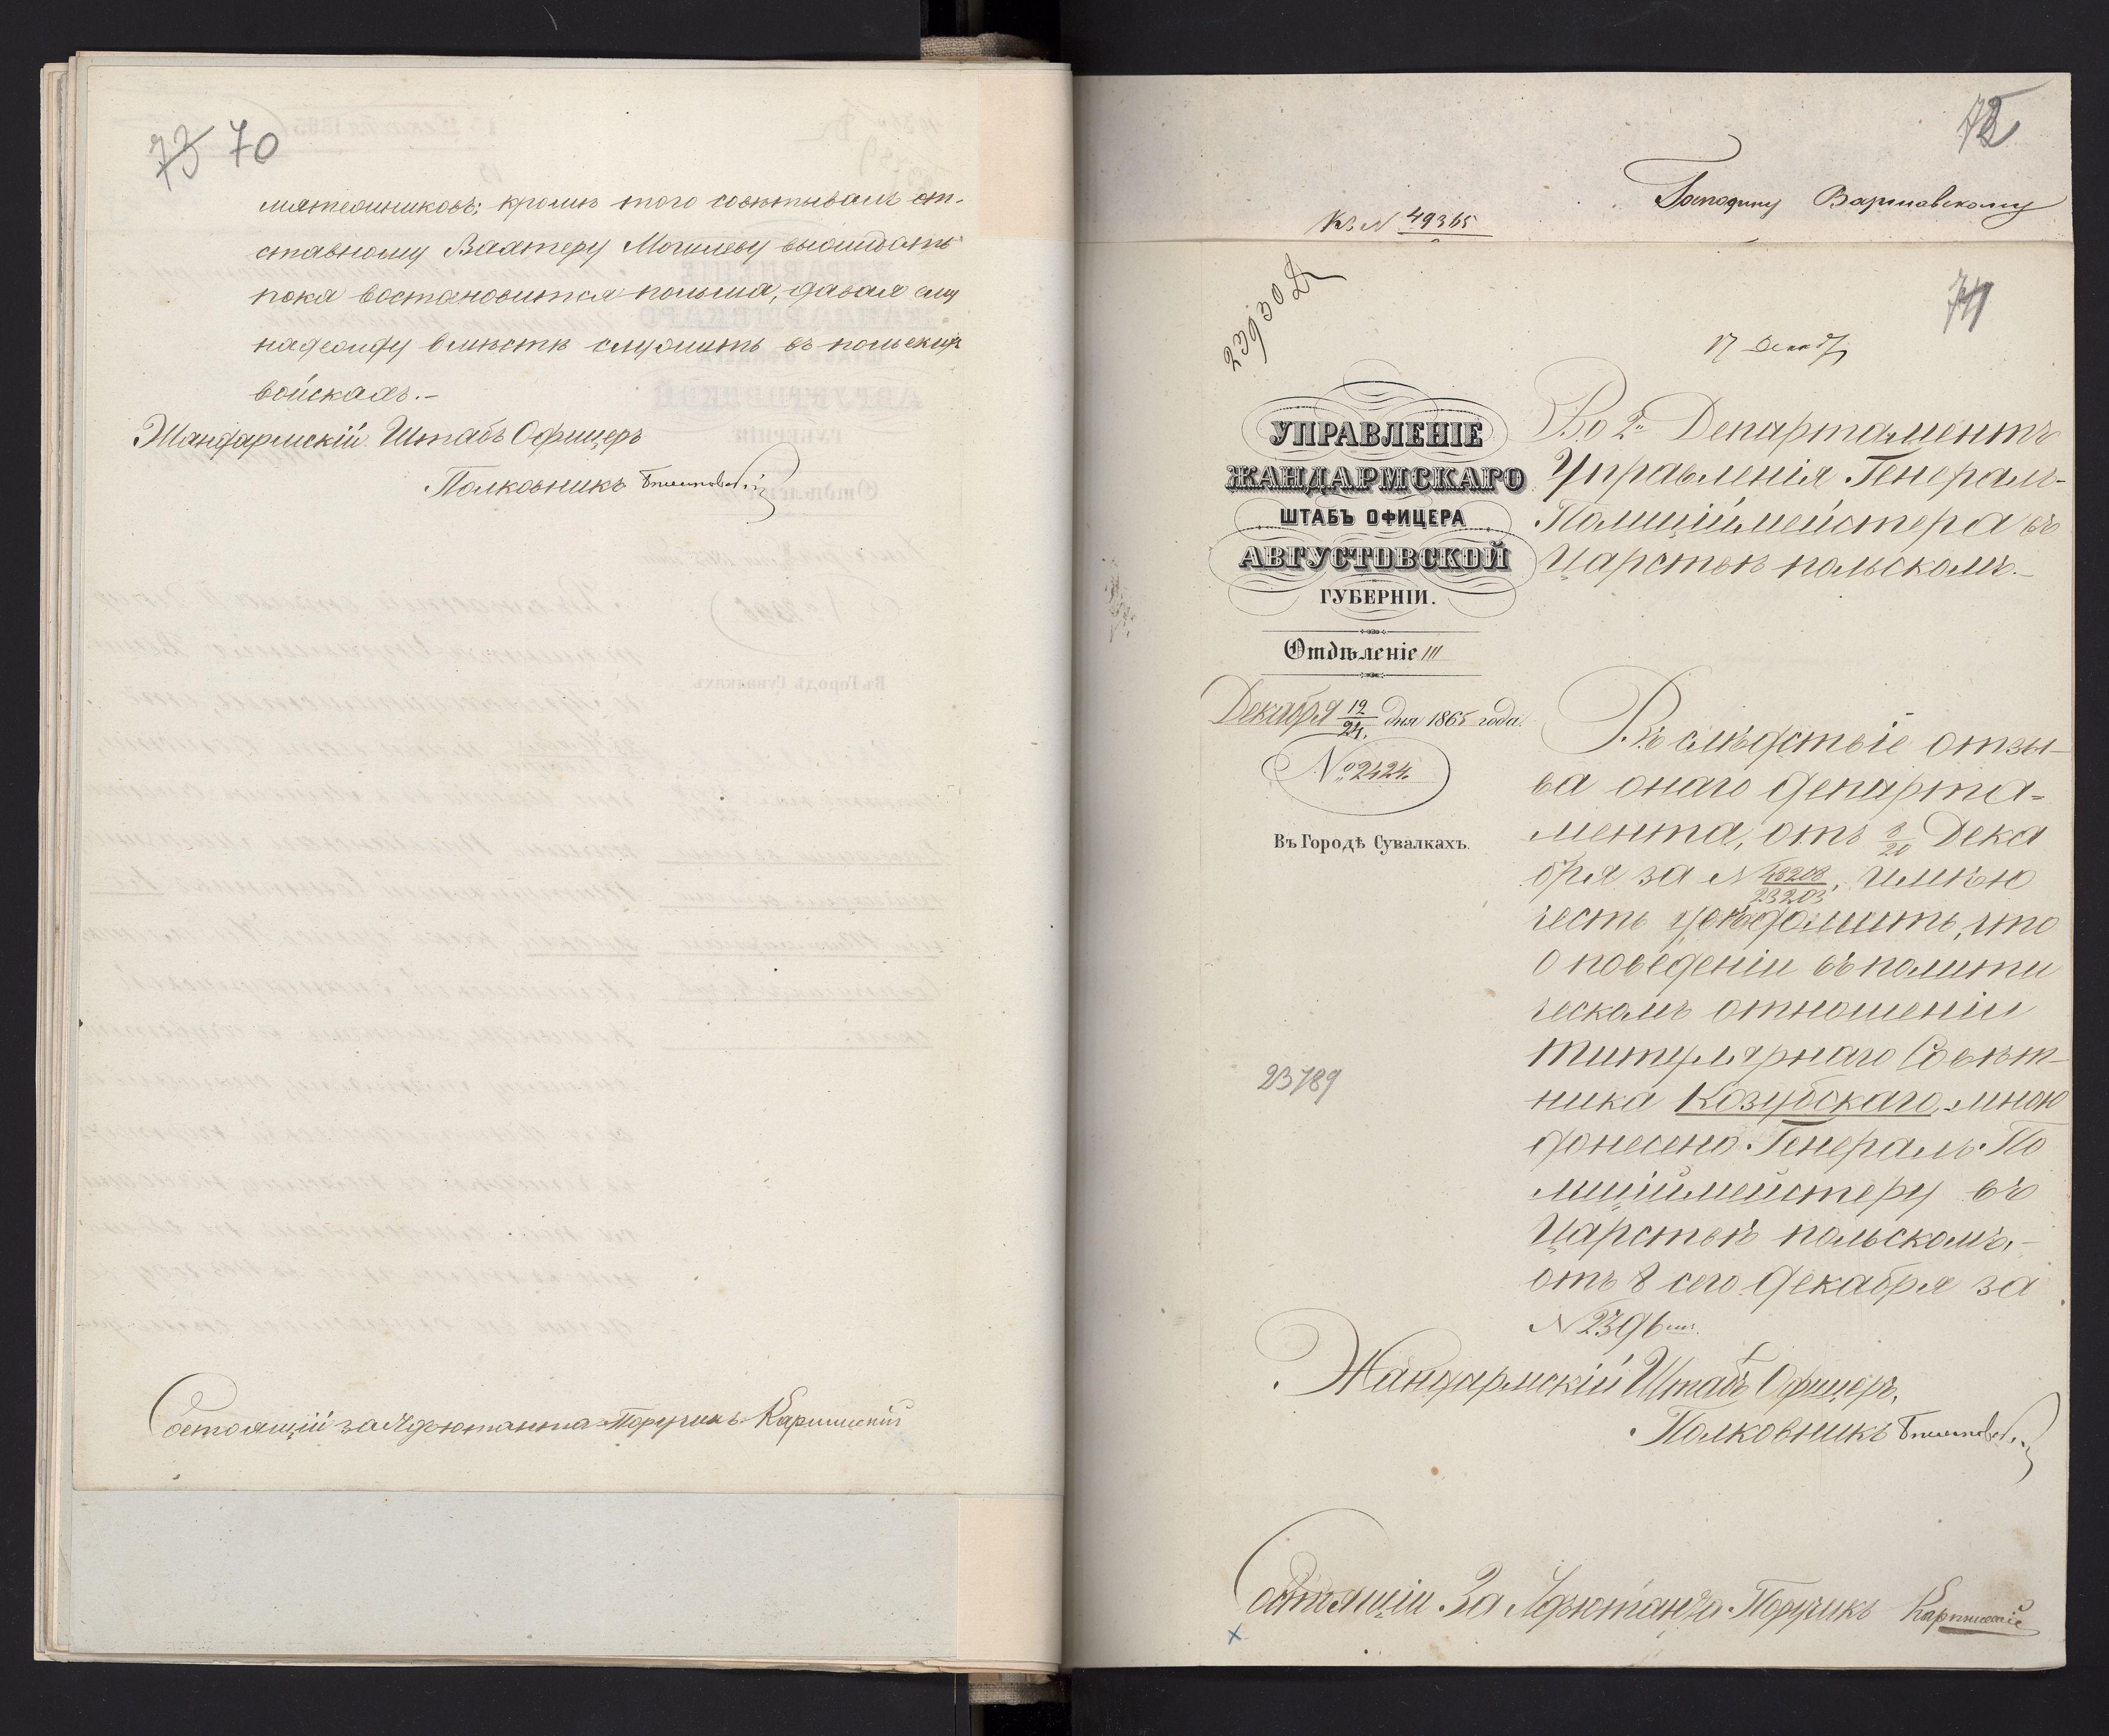 73 70
мятежниковъ; кромѣ того совѣтывалъ от-
ставному Вахтеру Могилеву выжидать
пока востановится польша, давая ему
надежду вмѣстѣ служить въ польскихъ
войскахъ.-
Жандармскій Штабъ Офицеръ
Полковникъ
Состоящій за Адъютанта Поручикъ
72
Господину Варшавскому
Къ N 49365
23930
71
17 Декаб
УПРАВЛЕНІЕ
ЖАНДАРМСКАГО
ШТАБЪ ОФИЦЕРА
АВГУСТОВСКОЙ
ГУБЕРНІИ.
Отдѣленіе III
Декабря 12/24. дня 1865 года.
№ 2424.
Въ Городѣ Сувалкахъ.
23789
Во 2й Департаментъ
Управленія Генералъ-
Полиціймейстера въ
Царствѣ польскомъ.-
Въ слѣдствіе отзы-
ва онаго департа-
мента, отъ 8/20 Дека
бря за N 48208/23203, имѣю
честь увѣдомить, что
о поведеніи въ полити
ческомъ отношеніи
титулярнаго Совѣт-
ника Козубскаго, мною
донесено Генералъ-По
лиціймейстеру въ
Царствѣ польскомъ,-
отъ 8 сего декабря за
N 2396
Жандармскій Штабъ Офицеръ,
Полковникъ
Состоящій За Адъютанта Поручикъ